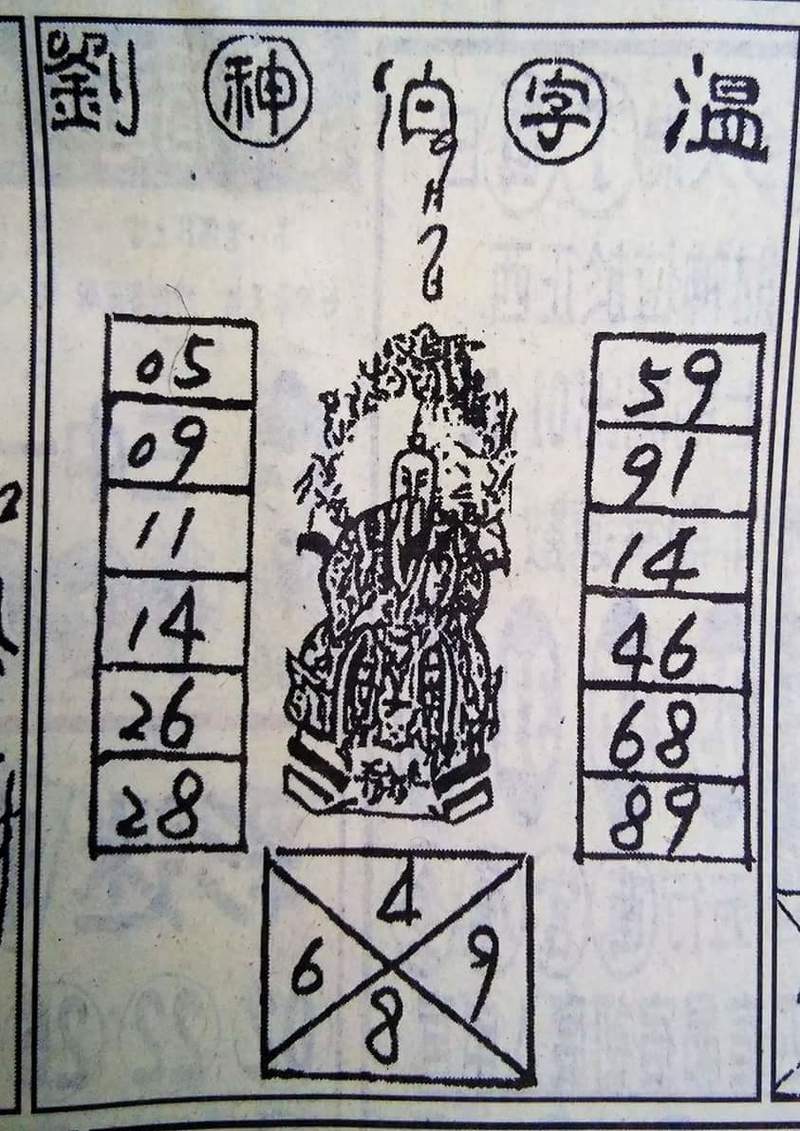 劉 神 伯 字 温
9月2日
05
09
11
14
26
28
59
91
14
46
68
89
4
6
9
8